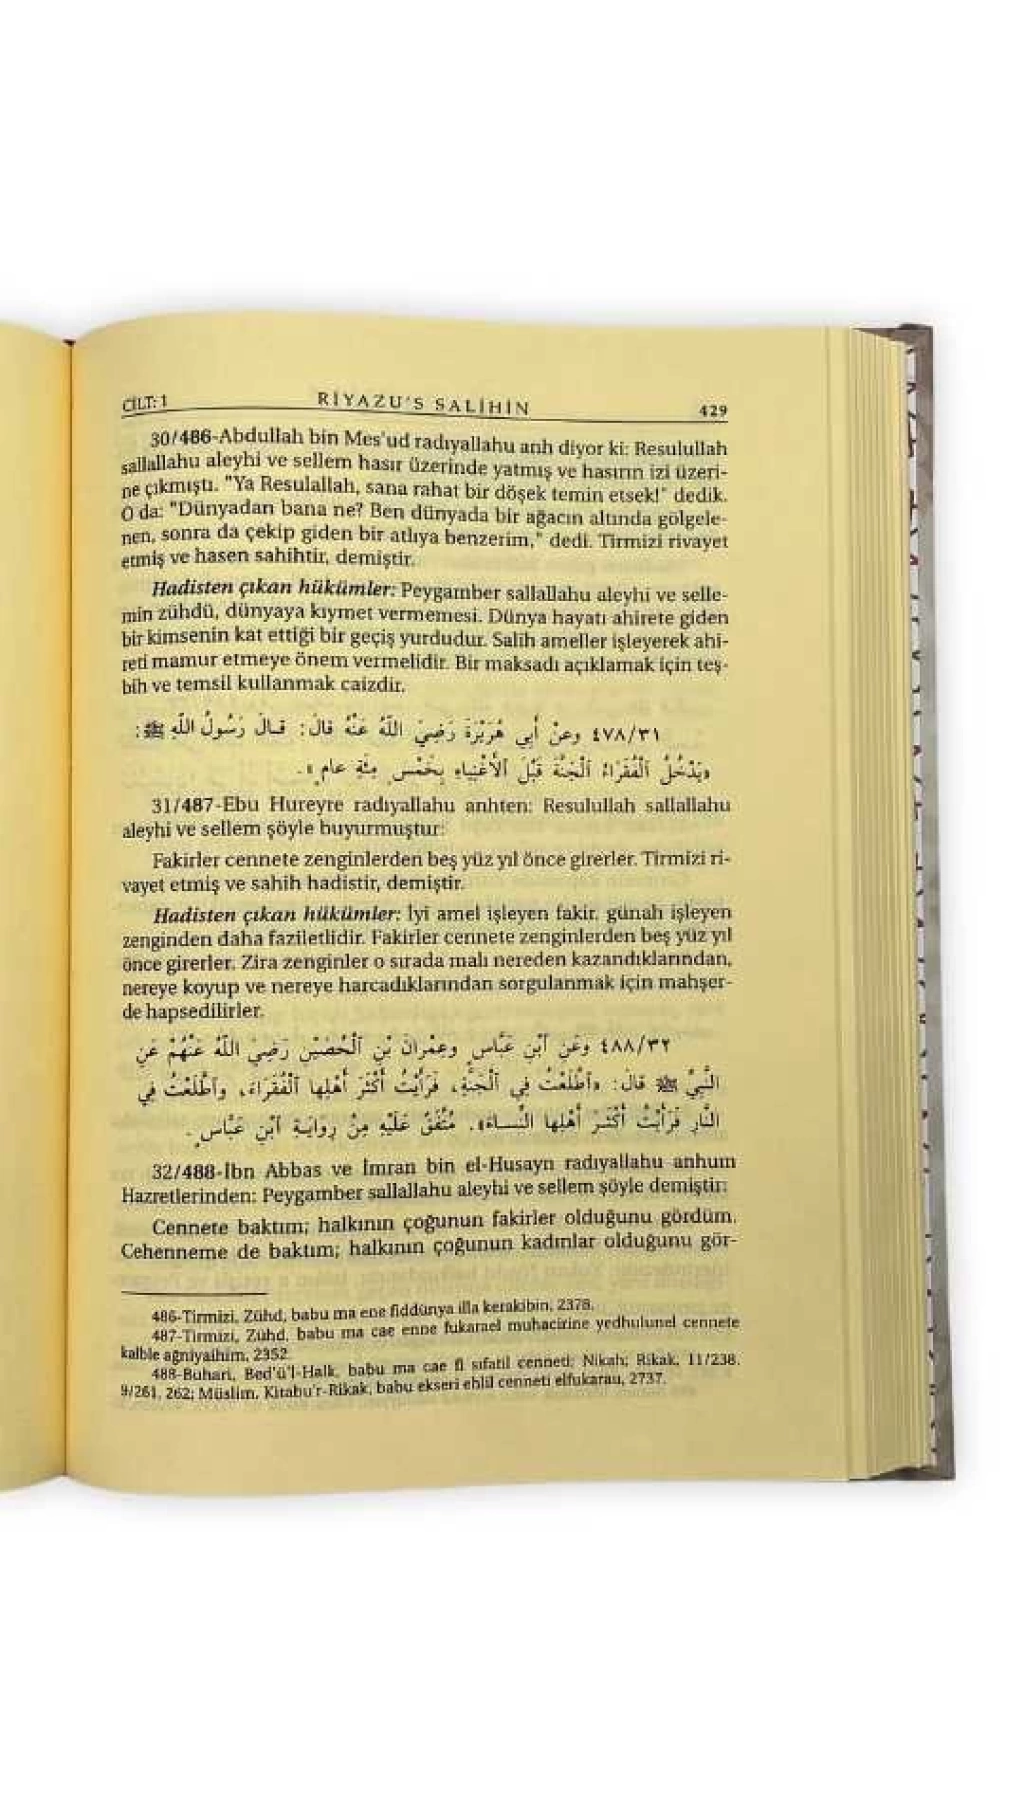 CİLT: 1 RİYAZU'S SALİHİN 429
30/486-Abdullah bin Mes'ud radıyallahu anh diyor ki: Resulullah
sallallahu aleyhi ve sellem hasır üzerinde yatmış ve hasırın izi üzeri-
ne çıkmıştı. "Ya Resulallah, sana rahat bir döşek temin etsek!" dedik.
O da: "Dünyadan bana ne? Ben dünyada bir ağacın altında gölgele-
nen, sonra da çekip giden bir atlıya benzerim," dedi. Tirmizi rivayet
etmiş ve hasen sahihtir, demiştir.
Hadisten çıkan hükümler: Peygamber sallallahu aleyhi ve selle-
min zühdü, dünyaya kıymet vermemesi. Dünya hayatı ahirete giden
bir kimsenin kat ettiği bir geçiş yurdudur. Salih ameller işleyerek ahi-
reti mamur etmeye önem vermelidir. Bir maksadı açıklamak için teş-
bih ve temsil kullanmak caizdir.
٤٧٨/٣١ وعن أَبي هُرَيْرَةَ رَضِيَ اللَّهُ عَنْهُ قالَ: قالَ رَسُولُ اللَّهِ ﷺ:
«يَدْخُلُ الْفُقَرَاءُ الْجَنَّةَ قَبْلَ الأَغْنِيَاءِ بِخَمْسِ مِئَةِ عامٍ».
31/487-Ebu Hureyre radıyallahu anhten: Resulullah sallallahu
aleyhi ve sellem şöyle buyurmuştur:
Fakirler cennete zenginlerden beş yüz yıl önce girerler. Tirmizi ri-
vayet etmiş ve sahih hadistir, demiştir.
Hadisten çıkan hükümler: İyi amel işleyen fakir, günah işleyen
zenginden daha faziletlidir. Fakirler cennete zenginlerden beş yüz yıl
önce girerler. Zira zenginler o sırada malı nereden kazandıklarından,
nereye koyup ve nereye harcadıklarından sorgulanmak için mahşer-
de hapsedilirler.
٤٨٨/٣٢ وعَنِ ابْنِ عَبَّاسٍ وعِمْرَانَ بْنِ الْحُصَيْنِ رَضِيَ اللَّهُ عَنْهُمْ عَنِ
النَّبِيِّ ﷺ قالَ: «اطَّلَعْتُ في الْجَنَّةِ، فَرَأَيْتُ أَكْثَرَ أَهْلِها الْفُقَرَاءَ، واطَّلَعْتُ في
النَّارِ فَرَأَيْتُ أَكْثَرَ أَهْلِها النِّساءَ». مُتَّفَقٌ عَلَيْهِ مِنْ رِوايَةِ ابْنِ عَبَّاسٍ.
32/488-İbn Abbas ve İmran bin el-Husayn radıyallahu anhum
Hazretlerinden: Peygamber sallallahu aleyhi ve sellem şöyle demiştir:
Cennete baktım; halkının çoğunun fakirler olduğunu gördüm.
Cehenneme de baktım; halkının çoğunun kadınlar olduğunu gör-
486-Tirmizi, Zühd, babu ma ene fiddünya illa kerakibin, 2378.
487-Tirmizi, Zühd, babu ma cae enne fukarael muhacirine yedhulunel cennete
kalble ağniyaihim, 2352.
488-Buhari, Bed'ü'l-Halk, babu ma cae fi sıfatil cenneti; Nikah; Rikak, 11/238,
9/261, 262; Müslim, Kitabu'r-Rikak, babu ekseri ehlil cenneti elfukarau, 2737.